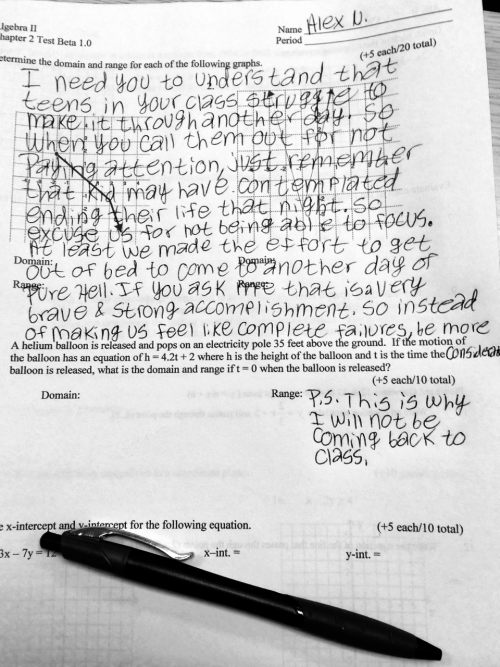 lgebra II
hapter 2 Test Beta 1.0
Name Alex N.
Period
(+5 each/20 total)
etermine the domain and range for each of the following graphs.
I need you to understand that
teens in your class struggle to
make it through another day. So
when you call them out for not
Paying attention, just remember
that kid may have contemplated
ending their life that night. So
excuse us for not being able to focus.
At least we made the effort to get
Domain: Domain:
out of bed to come to another day of
Range: Range:
pure Hell. If you ask me that is a very
brave & strong accomplishment. So instead
of making us feel like complete failures, be more
A helium balloon is released and pops on an electricity pole 35 feet above the ground. If the motion of
the balloon has an equation of h = 4.2t + 2 where h is the height of the balloon and t is the time the
balloon is released, what is the domain and range if t = 0 when the balloon is released?
(+5 each/10 total)
Domain: Range:
P.S. This is why
I will not be
coming back to
class.
e x-intercept and y-intercept for the following equation.
(+5 each/10 total)
3x – 7y = 12 x–int. = y-int. =